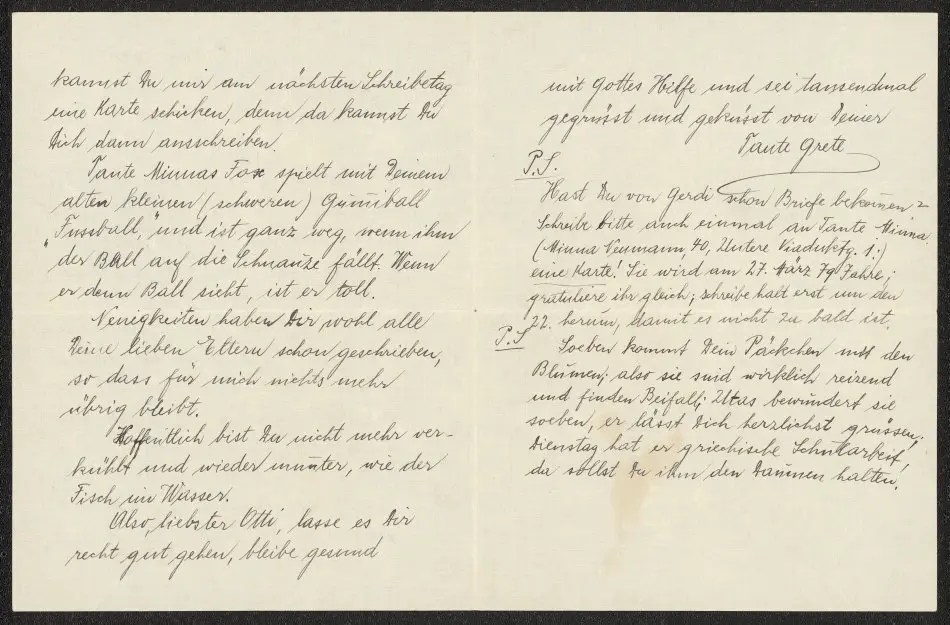 kannst Du mir am nächsten Schreibetag
eine Karte schicken, denn da kannst Du
Dich dann ausschreiben.
Tante Minnas Fox spielt mit Deinem
alten kleinen (schweren) Gum̅iball
"Fussball," und ist ganz weg, wenn ihm
der Ball auf die Schnauze fällt. Wenn
er den Ball sieht, ist er toll.
Neuigkeiten haben Dir wohl alle
Deine lieben Eltern schon geschrieben,
so dass für mich nichts mehr
übrig bleibt.
Hoffentlich bist Du nicht mehr ver-
kühlt und wieder munter, wie der
Fisch im Wasser.
Also, liebster Otti, lasse es Dir
recht gut gehen, bleibe gesund
mit Gottes Hilfe und sei tausendmal
gegrüsst und geküsst von Deiner
Tante Grete
P.S.
Hast Du von Gerdi schon Briefe bekom̅en?
Schreibe bitte auch einmal an Tante Minna.
(Minna Neumann, 40, Untere Viaduktg. 1.)
eine Karte! Sie wird am 27. März 79 Jahre;
gratuliere ihr gleich; schreibe halt erst um den
22. herum, damit es nicht zu bald ist.
P.S
Soeben kommt Dein Päckchen mit den
Blumen; also sie sind wirklich reizend
und finden Beifall; bewundert sie
soeben, er lässt Dich herzlichst grüssen;
Dienstag hat er griechische Schularbeit,
da sollst Du ihm den Daumen halten.